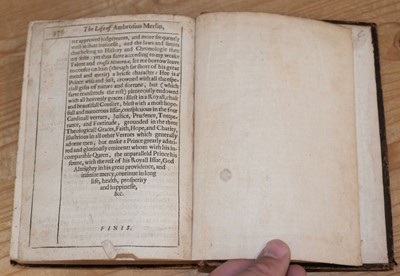 376 The Life of Ambrosius Merlin,
ter approved judgements, and more frequently
verst in that businesse, and the lawes and limits
that belong to History and Chronologie then
my selfe : yet thus farre according to my weake
Talent and
me to make on him (though far short of his great
mind and merit) a briefe character : Hee is a
Prince wise and just, crowned with all the especiall
gifts of nature and fortune, but (which
farre transcends the rest) plenteously endowed
with all heavenly graces : Blest in a Royall, chast
and beautifull Consort, blest with a most hopefull
and numerous Issue, conspicuous in the four
Cardinall vertues, Justice, Prudence, Temperance,
and Fortitude, grounded in the three
Theologicall Graces, Faith, Hope, and Charity,
Illustrious in all other Vertues which generally
adorne men, but make a Prince greatly admired
and gloriously eminent : whom with his incomparable
Queen, the unparalleld Prince his
sonne, with the rest of his Royall Issue, God
Almighty in his great providence, and
infinite mercy, continue in long
life, health, prosperity
and happinesse,
&c.
FINIS.